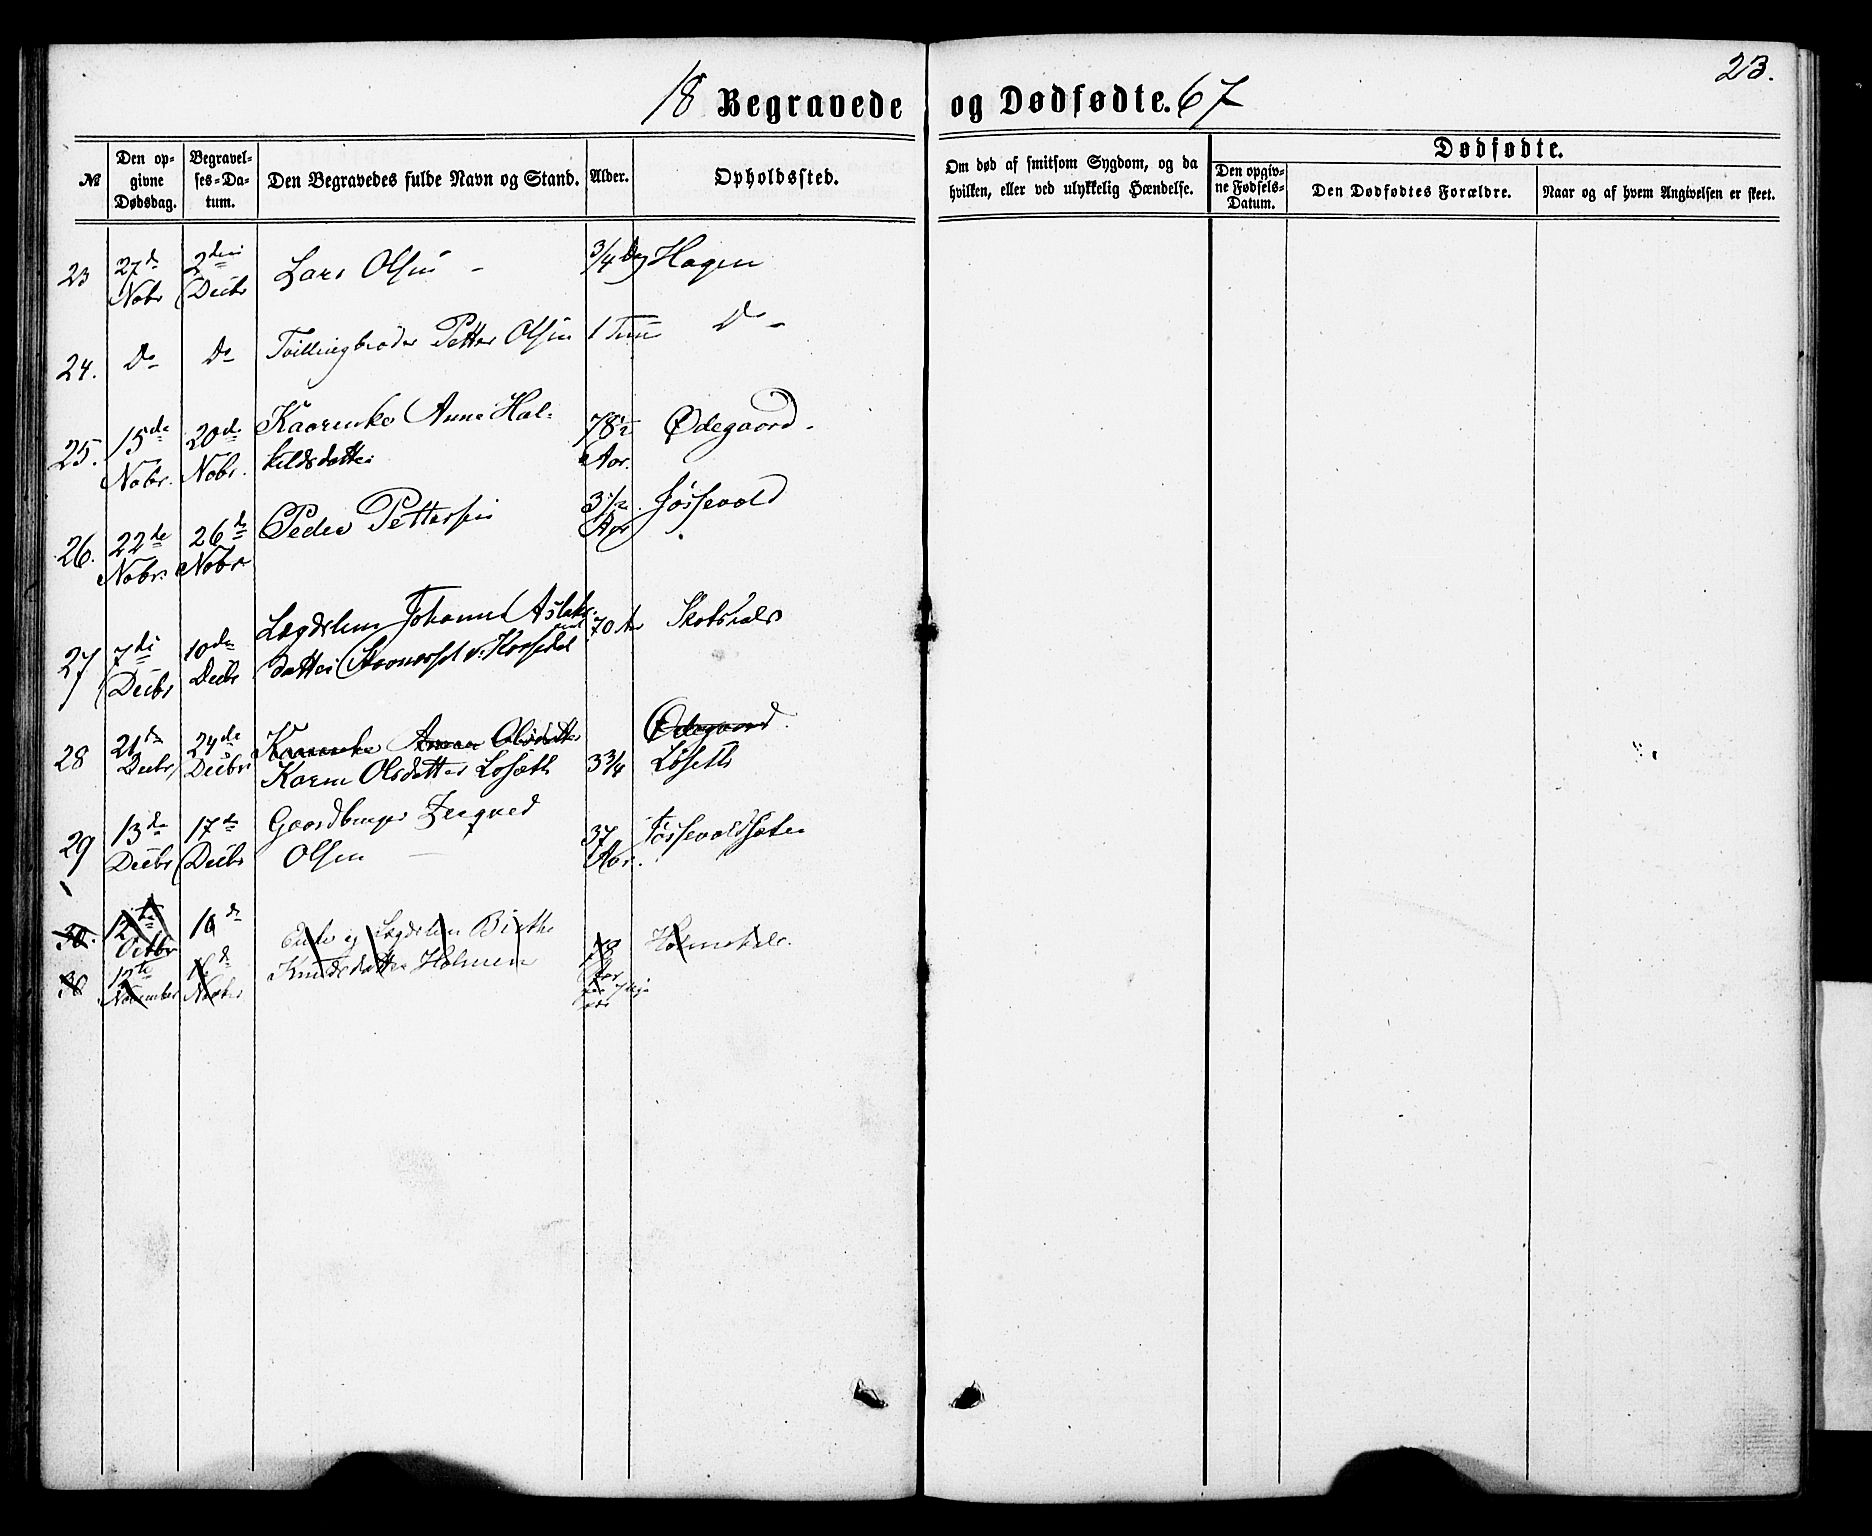 23.
18 Begravede og Dødfødte. 67
№
Den op-
givne
Dødsdag.
Begravel-
ses-Da-
tum.
Den Begravedes fulde Navn og Stand.
Alder.
Opholdssted.
Om død af smitsom Sygdom, og da
hvilken, eller ved ulykkelig Hændelse.
Dødfødte.
Den opgiv-
ne Fødsels-
Datum.
Den Dødfødtes Forældre.
Naar og af hvem Angivelsen er skeet.
23 27de Nobr 2den Decbr Lars Olsen 3/4 Dag Hagen
24. Do Do Tvillingbroder Petter Olsen 1 Time Do
25. 15de 20de Kaarenke Anne Hal- 78½ Ødegaard.
Nobr. Nobr. kildsdatter Aar.
26. 22de 26de Peder Pettersen 3½ Fossevold
Nobr. Nobr Aar
27 7de 10de Lægdslem Johanne Aslaks- 70 Aar
Decbr Decbr datter
28 21de 24de Kaarenke Anne Olsdatter Ødegaard.
Decbr Decbr Karen Olsdatter Løsæth 3¾ Løseth
29 13de 17de Gaardbruger 37 Fossevoldsæter
Decbr Decbr Olsen Aar.
30. 12te 16de Enke og Lægdslem Birthe 78 Holmedale.
Octbr
30 12te 16de Knudsdatter Holmen Aar
November Novbr